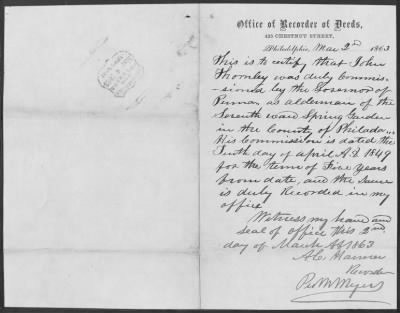 Office of Recorder of Deeds,
435 CHESTNUT STREET,
Philadelphia, Mar 2d 1863
This is to certify that John
Thornley was duly Commis-
-sioned by the Governor of
Penna as alderman of the
Seventh ward Spring Garden
in the County of Philada..
His Commission is dated the
Tenth day of april A.D. 1849
for the term of Five years
from date, and the same
is duly Recorded in my
office
Witness my hand and
seal of office this 2nd
day of March AD 1863
A.C. Harmer
Recorder
Per M Myers